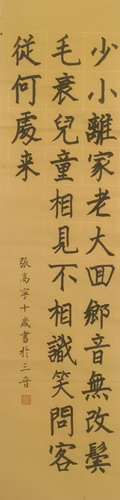 少小離家老大回鄉音無改鬓
毛衰兒童相見不相識笑問客
從何處来
張高寧十歲書於三晉